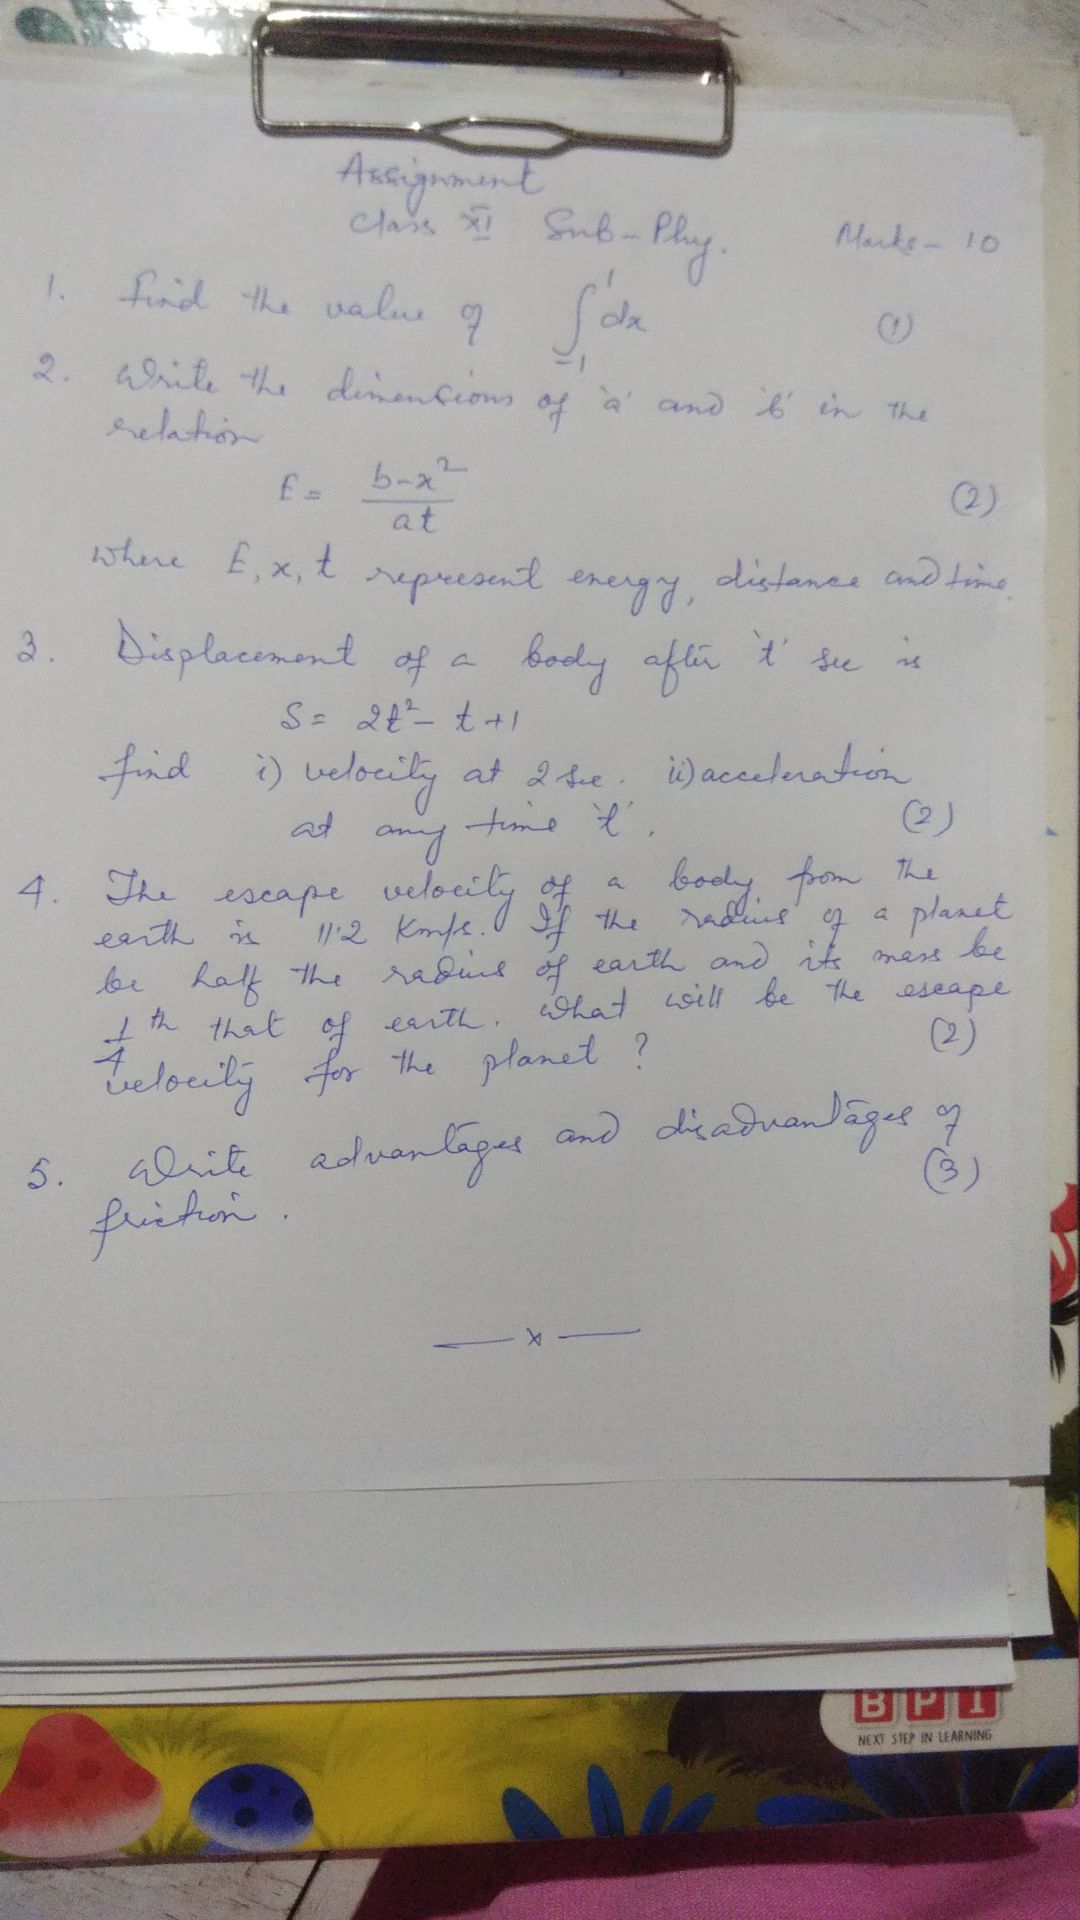 Assignment
Class XI Sub-Phy. Marks- 10
1. Find the value of ∫₋₁¹ dx (1)
2. Write the dimensions of 'a' and 'b' in the
relation
E = (b-x²)/(at) (2)
where E, x, t represent energy, distance and time.
3. Displacement of a body after 't' sec is
S = 2t² - t + 1
find i) velocity at 2 sec. ii) acceleration
at any time 't'. (2)
4. The escape velocity of a body from the
earth is 11.2 Km/s. If the radius of a planet
be half the radius of earth and its mass be
1/4 th that of earth. What will be the escape
velocity for the planet ? (2)
5. Write advantages and disadvantages of
friction. (3)
— x —
BPI
NEXT STEP IN LEARNING